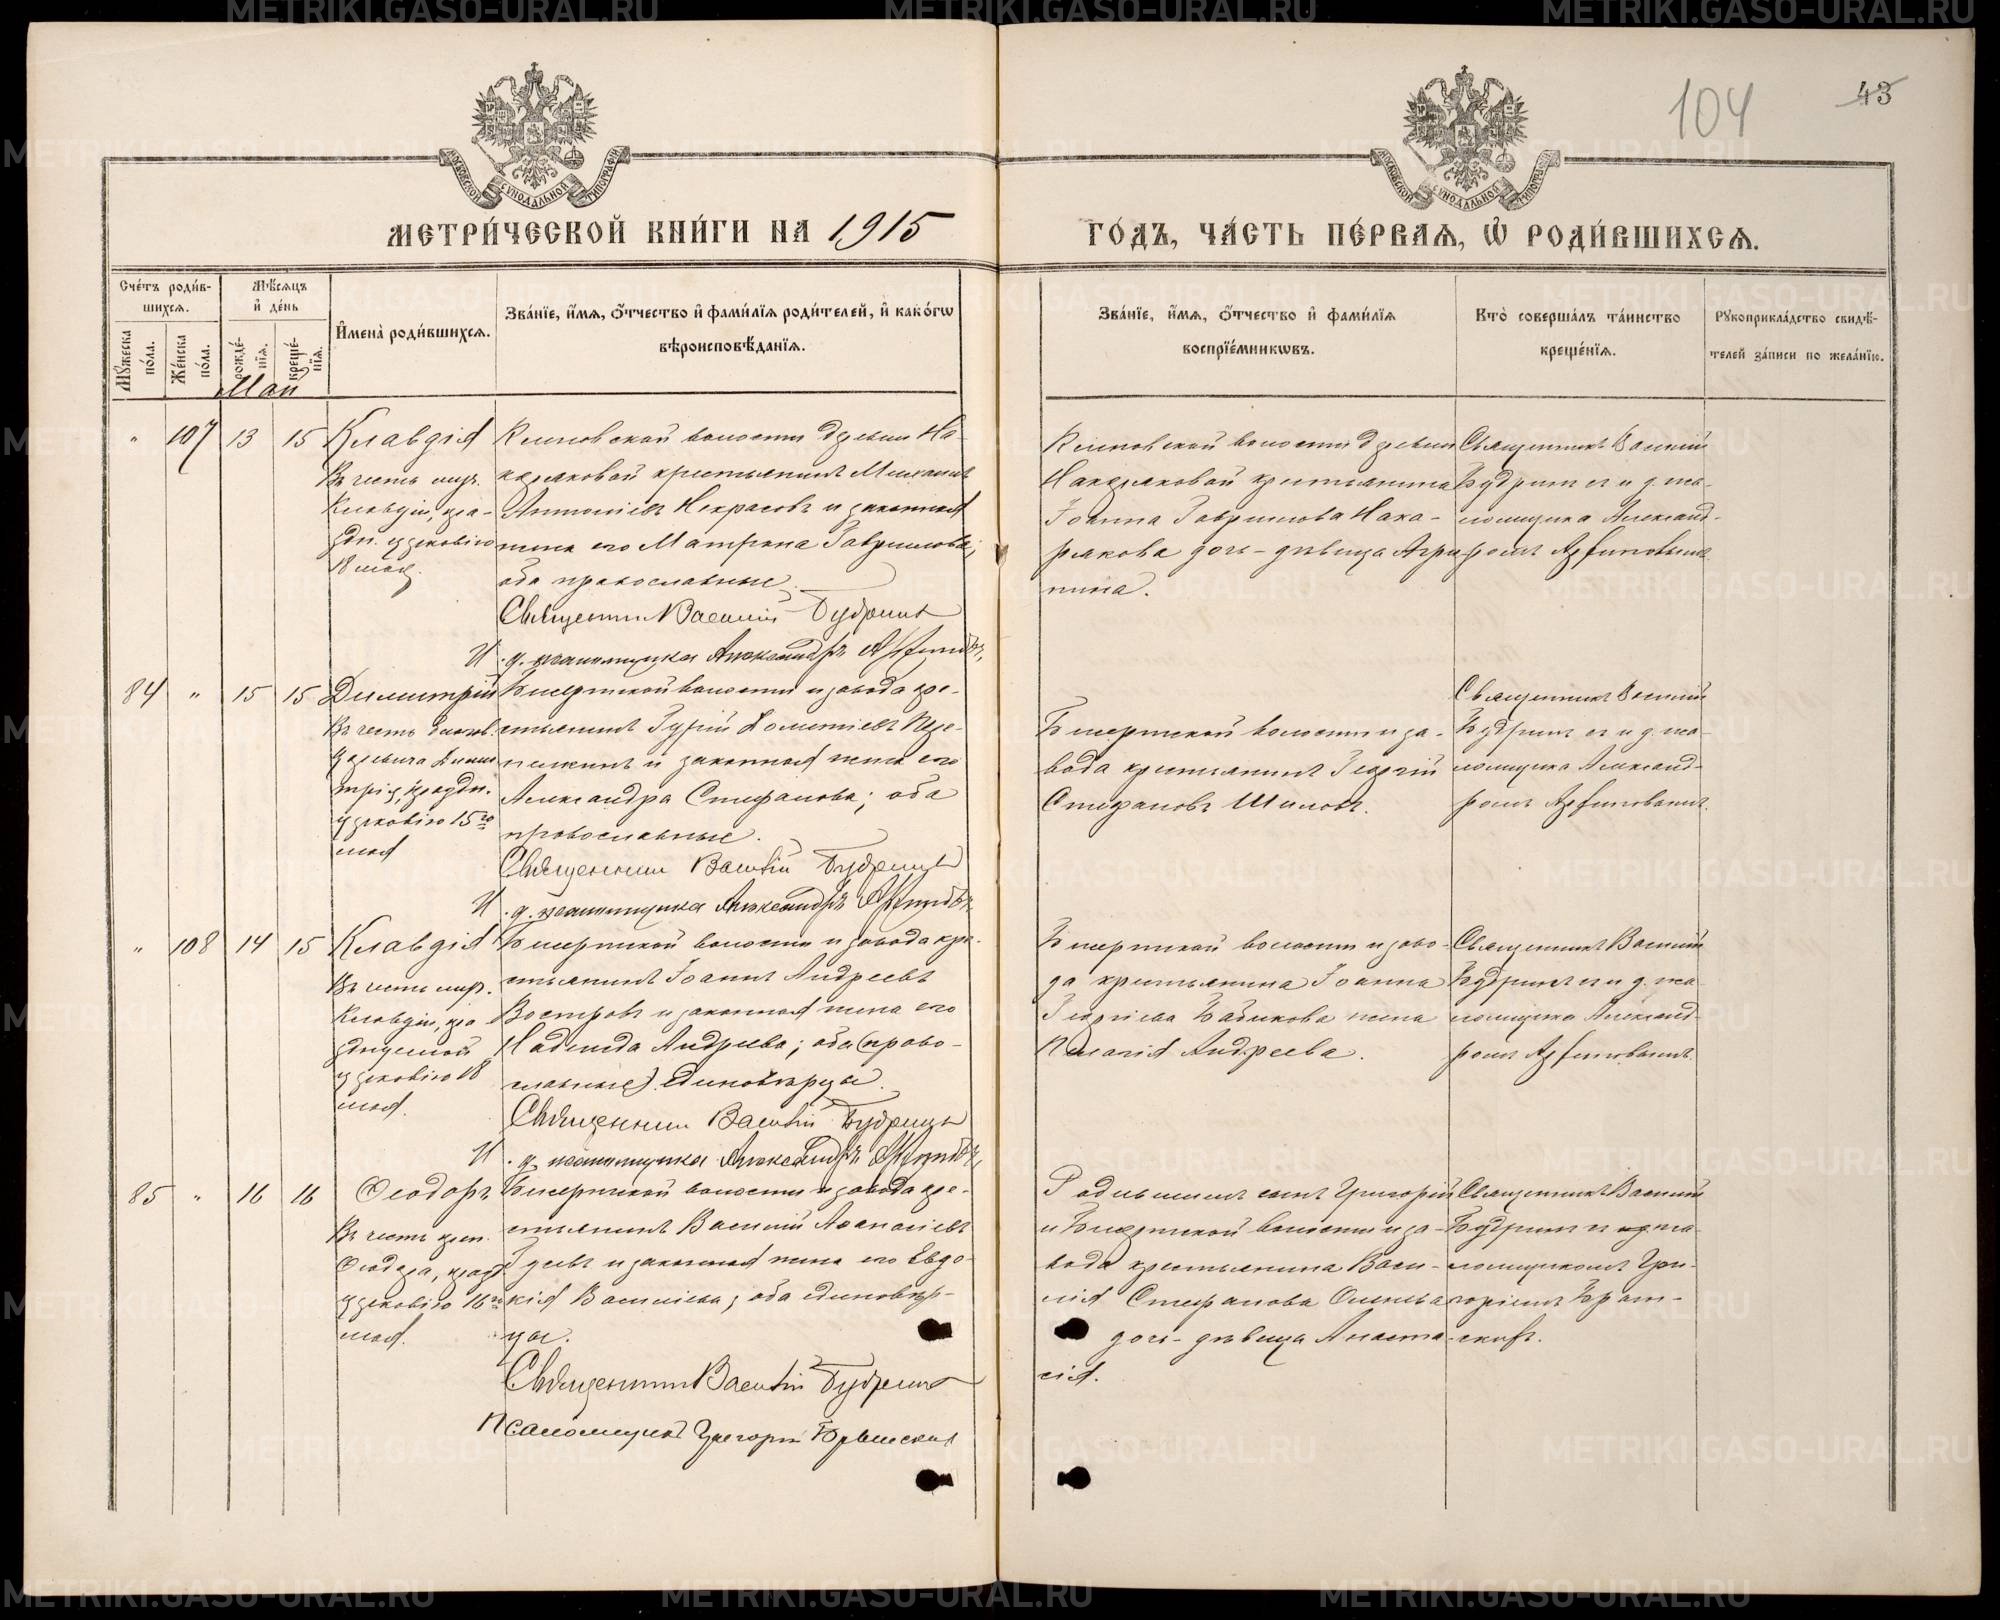 104
43
МОСКОВСКОЙ СѴНОДАЛЬНОЙ ТИПОГРАФІИ
МОСКОВСКОЙ СѴНОДАЛЬНОЙ ТИПОГРАФІИ
МЕТРИ́ЧЕСКОЙ КНИ́ГИ НА 1915
ГО́ДЪ, ЧА́СТЬ ПЕ́РВАѦ, Ѡ҆ РОДИ́ВШИХСѦ.
Сче́тъ роди́в-
шихсѧ.
Мꙋ́жеска
по́ла.
Же́нска
по́ла.
Мѣ́сѧцъ
и҆ де́нь
рожде́-
нїѧ.
креще́-
нїѧ.
И҆мена̀ роди́вшихсѧ.
Зва́нїе, и҆́мѧ, ѻ҆́тчество и҆ фами́лїѧ роди́телей, и҆ како́гѡ
вѣроисповѣ́данїѧ.
Зва́нїе, и҆́мѧ, ѻ҆́тчество и҆ фами́лїѧ
воспрїе́мникѡвъ.
Кто̀ соверша́лъ та́инство
креще́нїѧ.
Рꙋкоприкла́дство свидѣ́-
телей за́писи по жела́нїю.
Май
" 107 13 15
Клавдія
Въ честь муч.
Клавдіи, пра-
здн. церковію
18 мая.
Кленовской волости деревни На-
каряковой крестьянинъ Михаилъ
Антоніевъ Некрасовъ и законная
жена его Матрона Гаврилова;
оба православные.
Священникъ Василій Будринъ
И. д. псаломщика Александръ
Кленовской волости деревни
Накаряковой крестьянина
Іоанна Гаврилова Нака-
рякова дочь-дѣвица Агри-
пина.
Священникъ Василій
Будринъ съ и. д. пса-
ломщика Александ-
ромъ
84 " 15 15
Димитрій
Въ честь благов.
Царевича Дими-
трія, праздн.
церковію 15го
мая
Бисертской волости и завода кре-
стьянинъ Гурій Дометіевъ
и законная жена его
Александра Стефанова; оба
православные.
Священникъ Василій Будринъ
И. д. псаломщика Александръ
Бисертской волости и за-
вода крестьянинъ Георгій
Стефановъ Шиловъ.
Священникъ Василій
Будринъ съ и. д. пса-
ломщика Александ-
ромъ
" 108 14 15
Клавдія
Въ честь муч.
Клавдіи, пра
зднуемой
церковію 18
мая.
Бисертской волости и завода кре-
стьянинъ Іоаннъ Андреевъ
Востровъ и законная жена его
Надежда Андреева; оба (право-
славные). единовѣрцы.
Священникъ Василій Будринъ
И. д. псаломщика Александръ
Бисертской волости и заво-
да крестьянина Іоанна
Георгіева Бабикова жена
Пелагія Андреева.
Священникъ Василій
Будринъ съ и. д. пса
ломщика Александ-
ромъ
85 " 16 16
Ѳеодоръ
Въ честь преп.
Ѳеодора, празд
церковію 16го
мая.
Бисертской волости и завода кре-
стьянинъ Василій Аѳанасіевъ
Гуевъ и законная жена его Евдо-
кія Василіева; оба единовѣр-
цы.
Священникъ Василій Будринъ
Псаломщикъ Григорій
Родившихъ сынъ Григорій
и Бисертской волости и за-
вода крестьянина Васи-
лія Стефанова
дочь-дѣвица Анаста-
сія.
Священникъ Василій
Будринъ съ пса-
ломщикомъ Гри-
горіемъ
METRIKI.GASO-URAL.RU